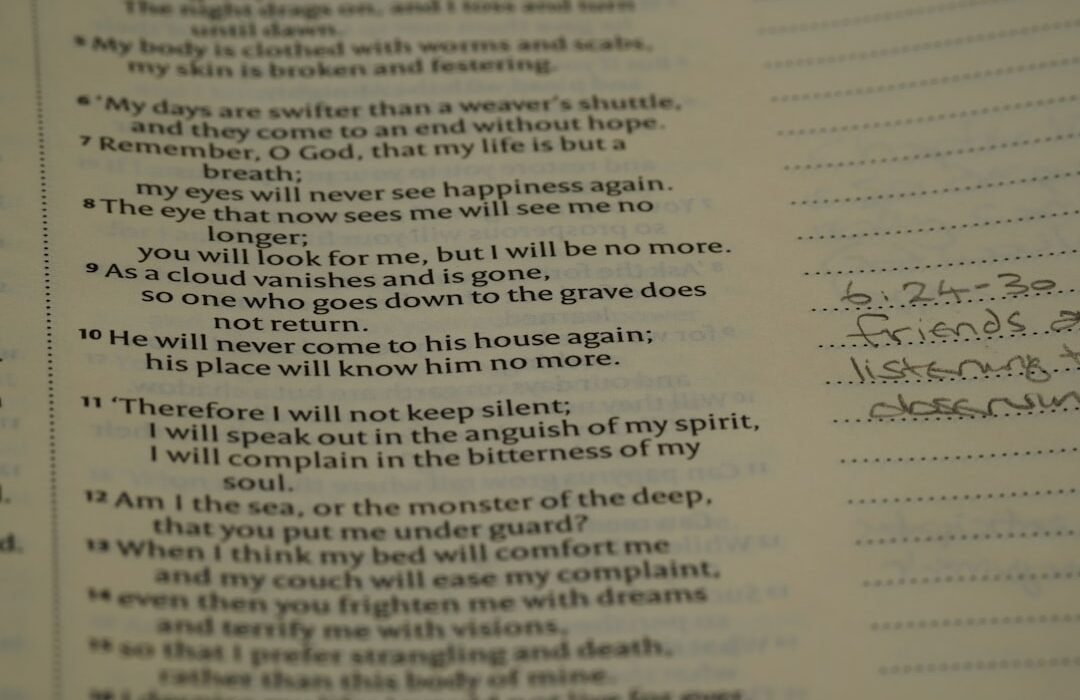 The night drags on, and I toss and turn
until dawn.
5 My body is clothed with worms and scabs,
my skin is broken and festering.
6 ‘My days are swifter than a weaver’s shuttle,
and they come to an end without hope.
7 Remember, O God, that my life is but a
breath;
my eyes will never see happiness again.
8 The eye that now sees me will see me no
longer;
you will look for me, but I will be no more.
9 As a cloud vanishes and is gone,
so one who goes down to the grave does
not return.
10 He will never come to his house again;
his place will know him no more.
11 ‘Therefore I will not keep silent;
I will speak out in the anguish of my spirit,
I will complain in the bitterness of my
soul.
12 Am I the sea, or the monster of the deep,
that you put me under guard?
13 When I think my bed will comfort me
and my couch will ease my complaint,
14 even then you frighten me with dreams
and terrify me with visions,
15 so that I prefer strangling and death,
rather than this body of mine.
6:24-30
friends
listening